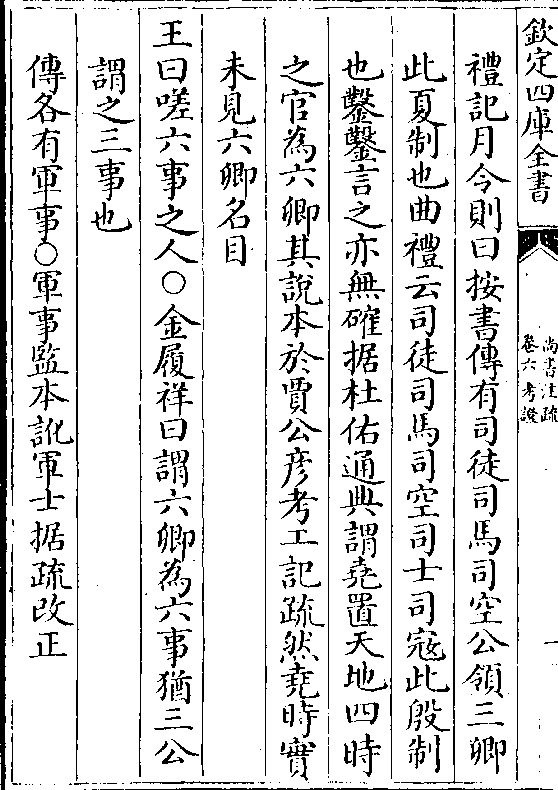 欽定四庫全書
尚書注疏
卷六考證
一
禮記月令則曰按書傳有司徒司馬司空公領三卿
此夏制也曲禮云司徒司馬司空司士司寇此殷制
也鑿鑿言之亦無確据杜佑通典謂堯置天地四時
之官為六卿其說本於賈公彥考工記疏然堯時實
未見六卿名目
王曰嗟六事之人○金履祥曰謂六卿為六事猶三公
謂之三事也
傳各有軍事○軍事監本訛軍士据疏改正